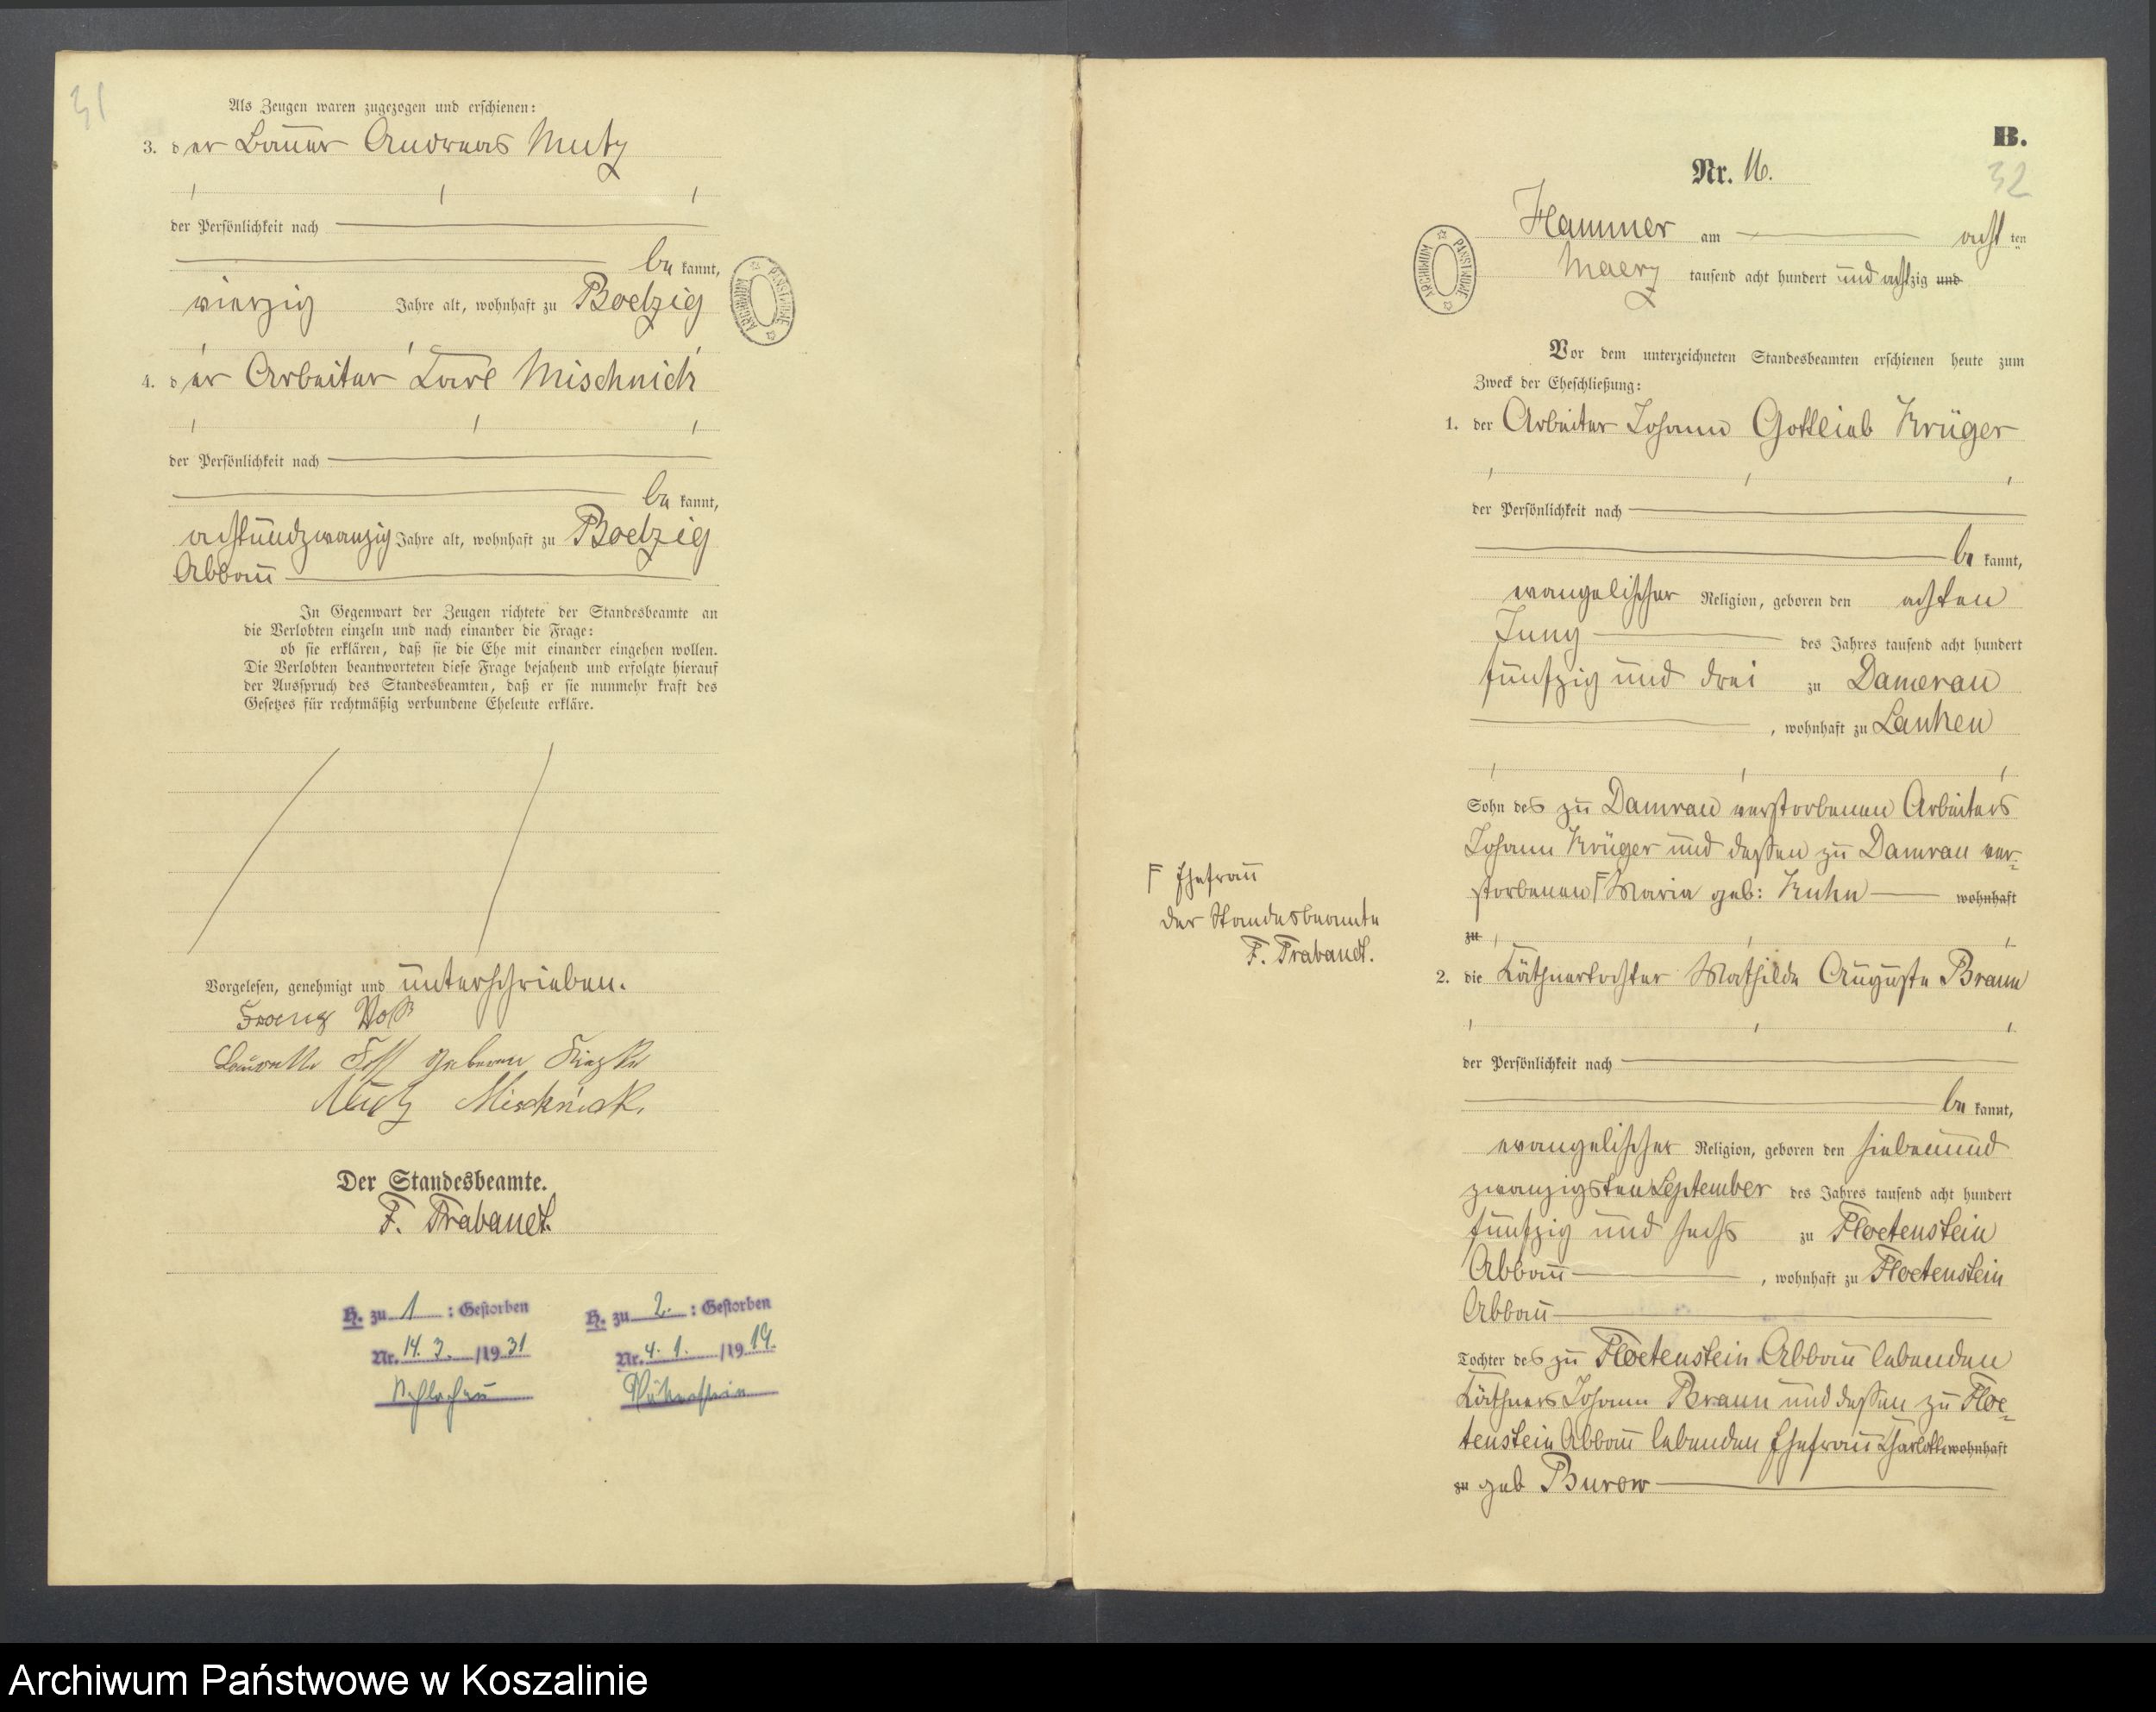 31
Als Zeugen waren zugezogen und erschienen:
3. der Bauer Andreas Mutz
der Persönlichkeit nach
be kannt,
vierzig Jahre alt, wohnhaft zu Boelzig
4. der Arbeiter Carl Mischnick
der Persönlichkeit nach
be kannt,
achtundzwanzig Jahre alt, wohnhaft zu Boelzig
Abbau
In Gegenwart der Zeugen richtete der Standesbeamte an
die Verlobten einzeln und nach einander die Frage:
ob sie erklären, daß sie die Ehe mit einander eingehen wollen.
Die Verlobten beantworteten diese Frage bejahend und erfolgte hierauf
der Ausspruch des Standesbeamten, daß er sie nunmehr kraft des
Gesetzes für rechtmäßig verbundene Eheleute erkläre.
Vorgelesen, genehmigt und unterschrieben.
Franz Voß
geboren
Mutz Mischnick.
Der Standesbeamte.
F. Trabandt.
H. zu 1 : Gestorben
Nr. 14. 3. /1931
Schlochau
H. zu 2. : Gestorben
Nr. 4. 1. /1919.
ARCHIWUM PAŃSTWOWE
B.
32
Nr. 16.
ARCHIWUM PAŃSTWOWE
Hammer am acht ten
Maerz tausend acht hundert und achtzig und
Vor dem unterzeichneten Standesbeamten erschienen heute zum
Zweck der Eheschließung:
1. der Arbeiter Johann Gottlieb Krüger
der Persönlichkeit nach
be kannt,
evangelischer Religion, geboren den achten
Juny des Jahres tausend acht hundert
fünfzig und drei zu Damerau
, wohnhaft zu Lanken
Sohn des zu Damrau verstorbenen Arbeiters
Johann Krüger und dessen zu Damrau ver-
storbenen F Maria geb: Kuhn wohnhaft
zu
F Ehefrau
der Standesbeamte
F. Trabandt.
2. die Käthnertochter Mathilde Auguste Braun
der Persönlichkeit nach
be kannt,
evangelischer Religion, geboren den siebenund
zwanzigsten September des Jahres tausend acht hundert
fünfzig und sechs zu Floetenstein
Abbau , wohnhaft zu Floetenstein
Abbau
Tochter des zu Floetenstein Abbau lebenden
Käthners Johann Braun und dessen zu Floe-
tenstein Abbau lebenden Ehefrau Charlotte wohnhaft
zu geb Burow
Archiwum Państwowe w Koszalinie